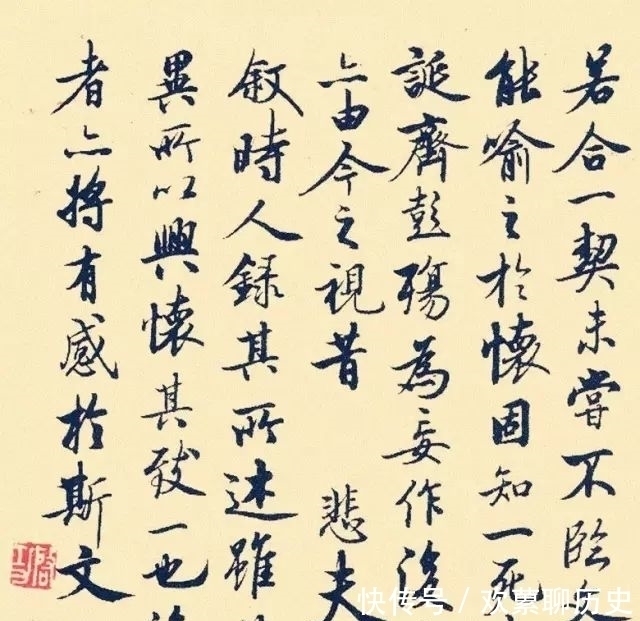 若合一契未嘗不臨
能喻之於懷固知一死
誕齊彭殤為妄作後
亦由今之視昔 悲夫
叙時人錄其所述雖
異所以興懷其致一也後
者亦將有感於斯文
快传号 / 欢聊历史